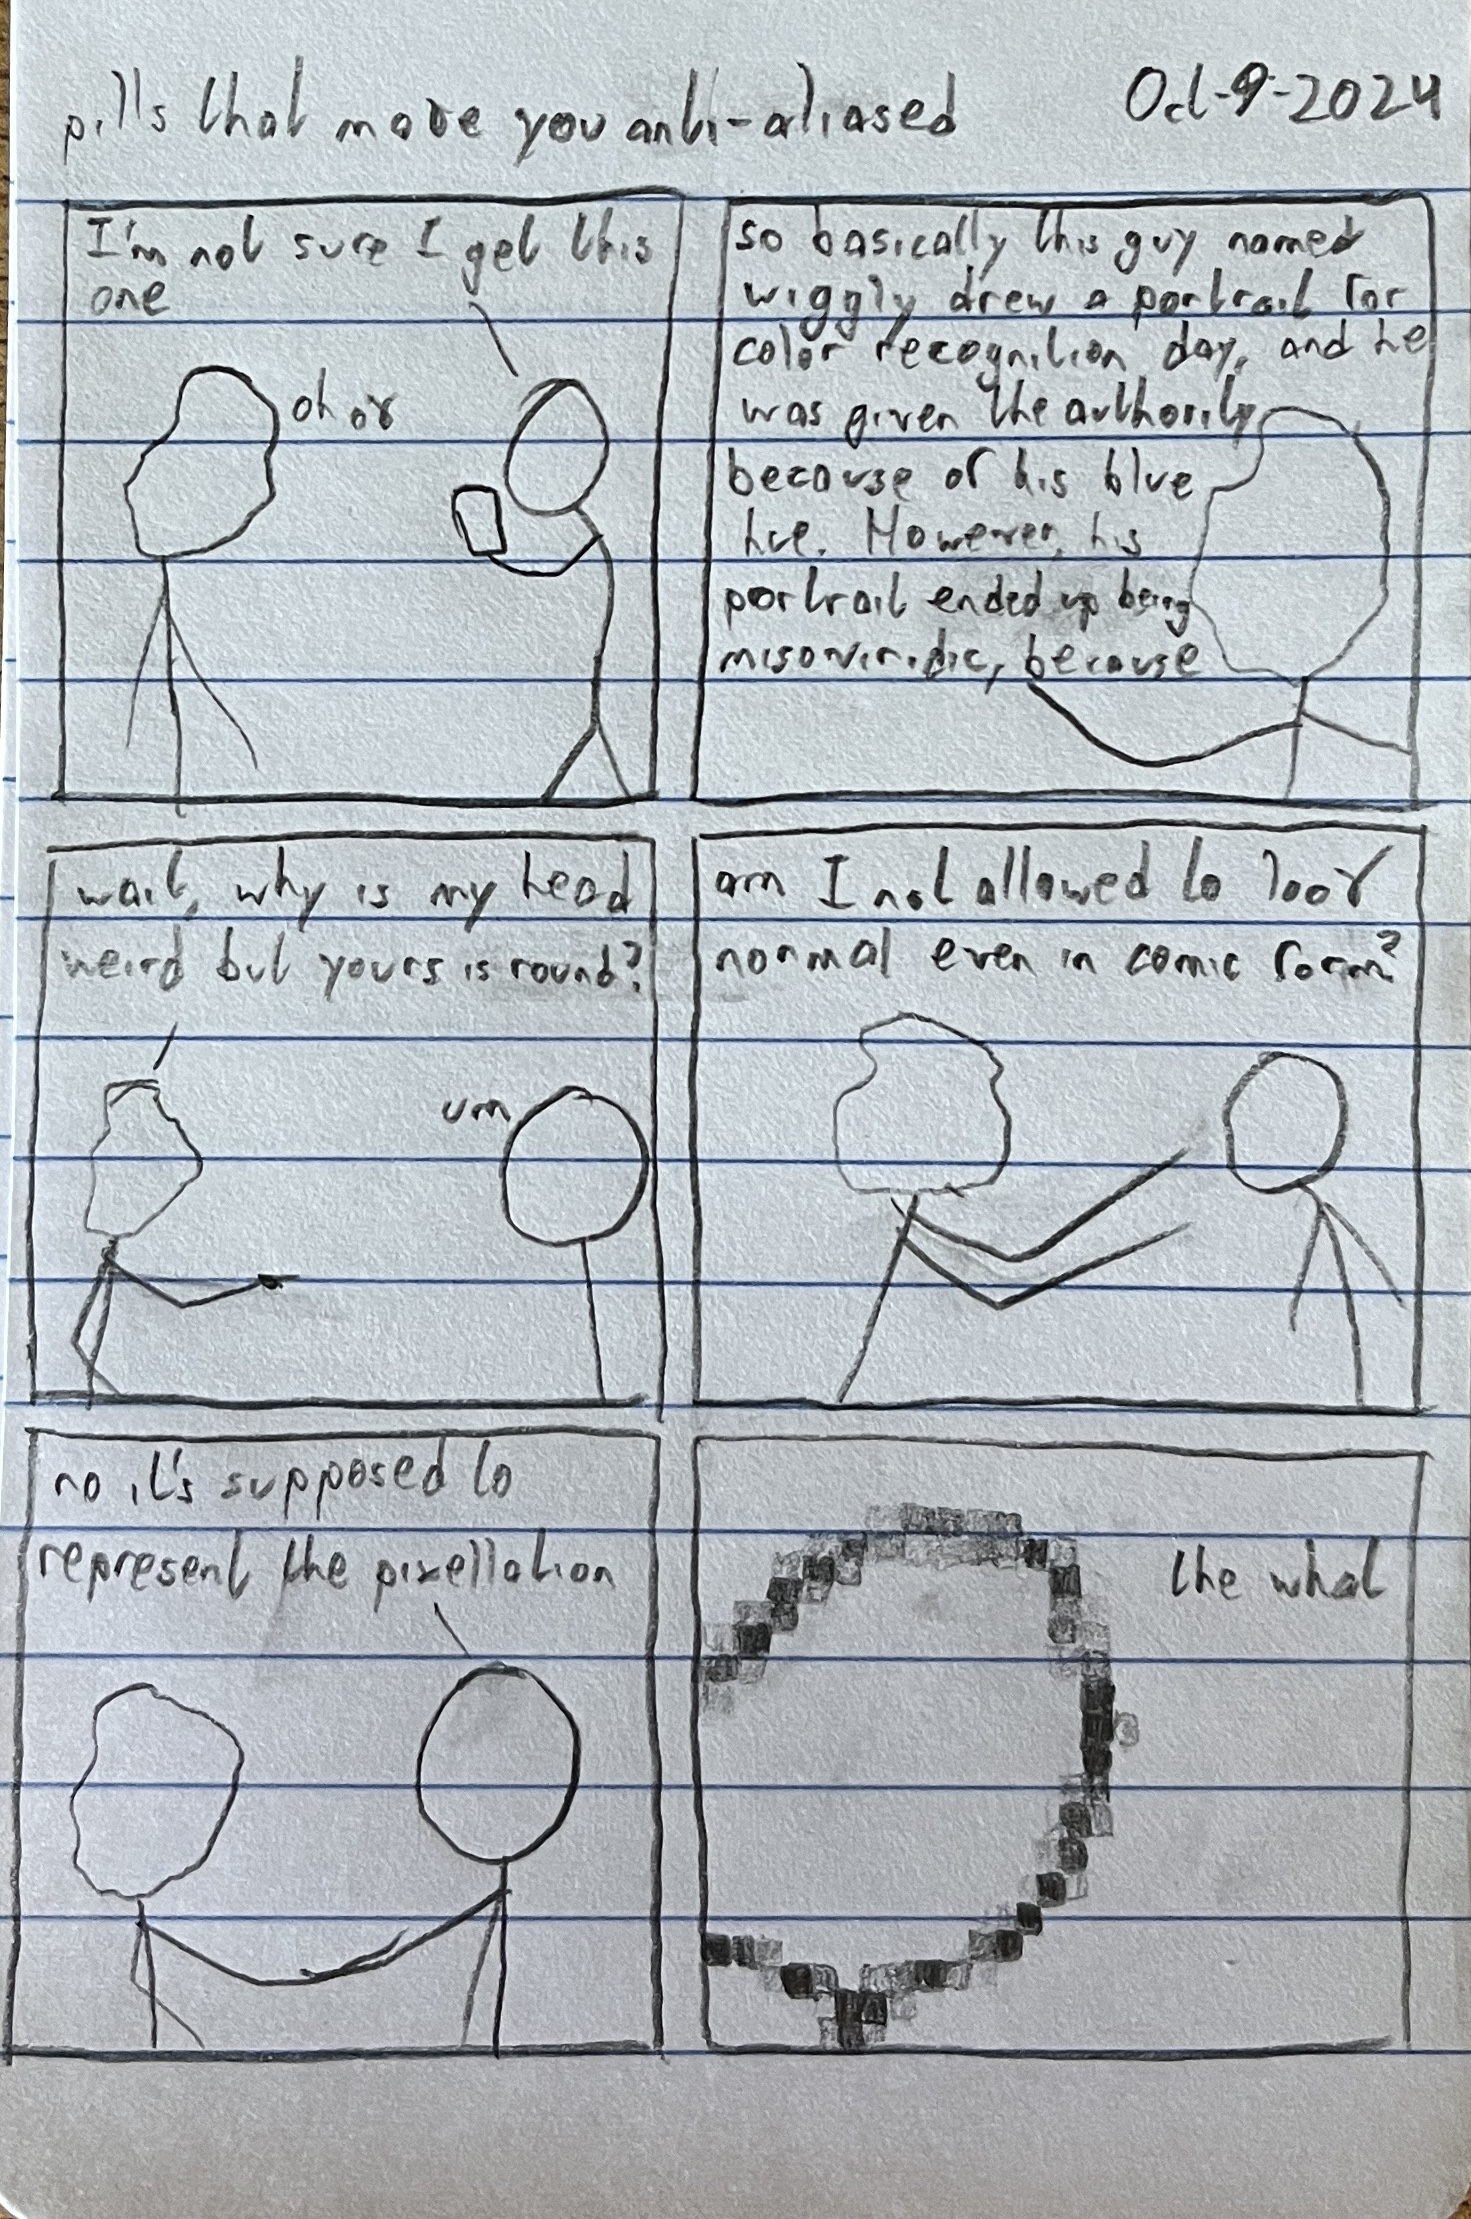 pills that make you anti-aliased
Oct-9-2024
I'm not sure I get this
one
oh ok
so basically this guy named
wiggly drew a portrait for
color recognition day, and he
was given the authority
because of his blue
hue. However, his
portrait ended up being
misoviridic, because
wait, why is my head
weird but yours is round?
um
am I not allowed to look
normal even in comic form?
no it's supposed to
represent the pixellation
the what